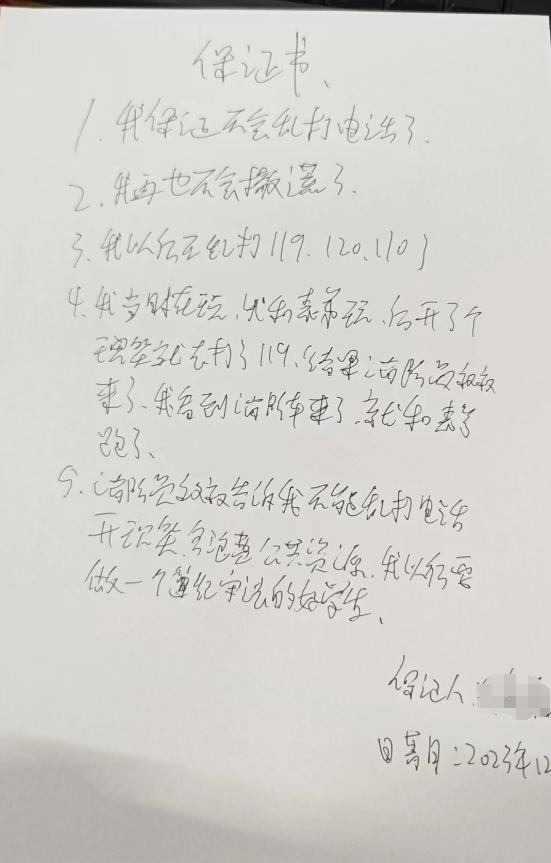 保证书、
1. 我保证不会乱打电话了.
2. 我再也不会撒谎了.
3. 我以后不乱打119.120.110了
4. 我当时在玩,我和表弟玩,后开了个
玩笑就去打了119,结果消防员叔叔
来了、我看到消防车来了,就和表弟
跑了、
5. 消防员叔叔告诉我不能乱打电话
开玩笑,会浪费公共资源,我以后要
做一个遵纪守法的好学生、
保证人:
日期:2023年12